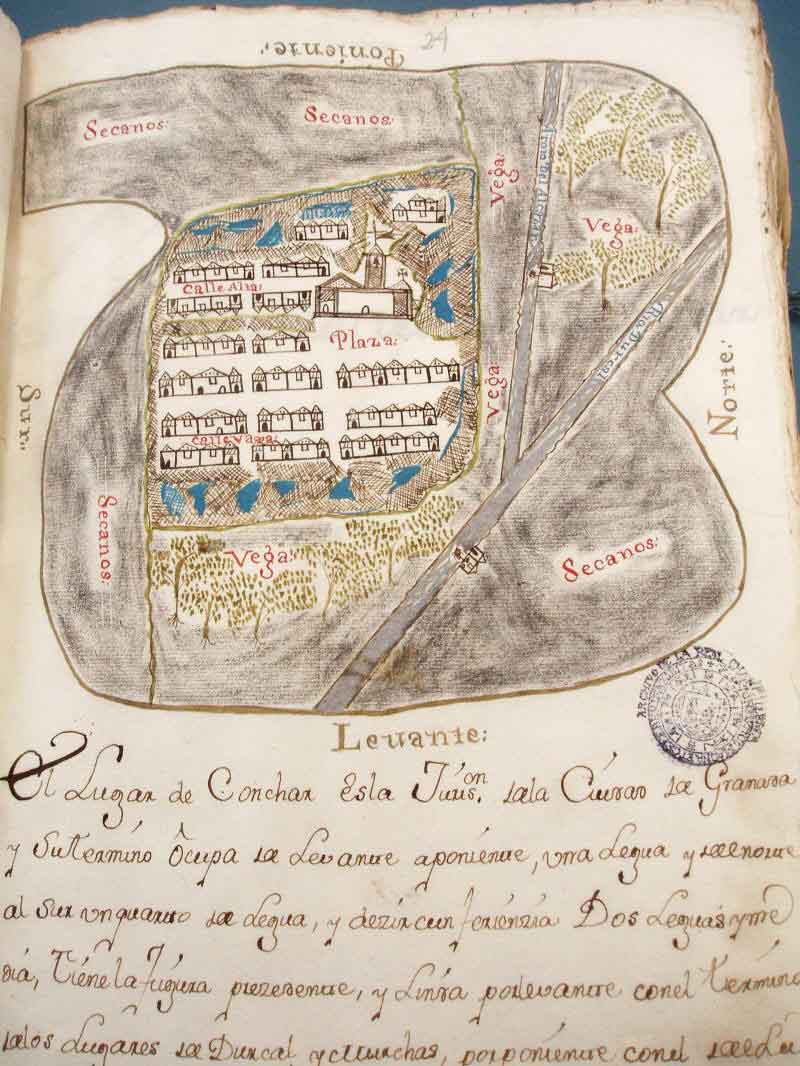 24
Poniente:
Secanos:
Secanos:
Vega:
Vega:
Calle Alta:
Plaza:
Rio Durcal
Norte:
Sur:
Vega:
Calle Vaxa:
Secanos:
Vega:
Secanos:
Levante:
ARCHIVO DE LA REAL
El Lugar de Conchar Es la Juris.on de la Ciudad de Granada
y Su termino Ocupa de Levante aponiente, una Legua y de norte
al Sur un quarto de Legua, y de zircunferienzia Dos Leguas y me
dia, tiene la figura prezedente, y Linda por levante con el termino
de los Lugares de Durcal y Murchas, por poniente con el de el Lu